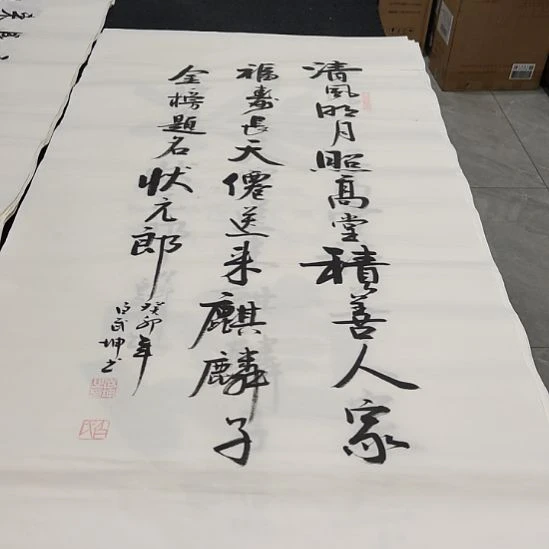 清风明月照高堂積善人家
福寿長天僊送来麒麟子
金榜题名状元郎
癸卯年
坤书